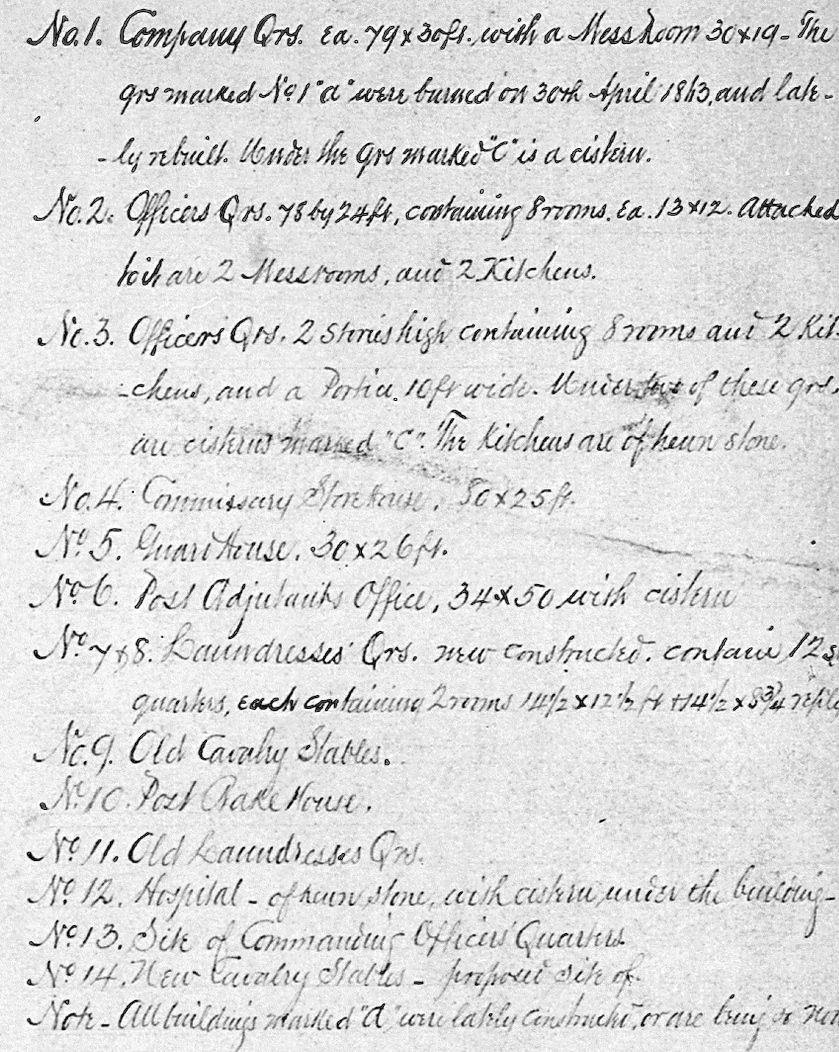 No. 1. Company Qrs. ea. 79 x 30 ft., with a Mess Room 30 x 19 - The
qrs marked No 1 "a" were burned on 30th April 1863, and late-
-ly rebuilt. Under the qrs marked "C" is a cistern.
No. 2. Officers Qrs. 78 by 24 ft, containing 8 rooms, ea. 13 x 12. Attached
to it are 2 Messrooms, and 2 Kitchens.
No. 3. Officers' Qrs. 2 stories high containing 8 rooms and 2 Kit-
-chens, and a Portico 10 ft wide. Under two of these qrs.
are cisterns marked "C". The Kitchens are of hewn stone.
No. 4. Commissary Storehouse, 80 x 25 ft.
No. 5. Guard House. 30 x 26 ft.
No. 6. Post Adjutants Office, 34 x 50 with cistern
No. 7 & 8. Laundresses' Qrs. new constructed. contain 12
quarters, each containing 2 rooms 14 1/2 x 12 1/2 ft + 14 1/2 x 8 3/4
No. 9. Old Cavalry Stables.
No. 10. Post Bake House.
No. 11. Old Laundresses Qrs.
No. 12. Hospital - of hewn stone, with cistern under the building -
No. 13. Site of Commanding Officers' Quarters.
No. 14. New Cavalry Stables - proposed site of.
Note - All buildings marked "a" were lately constructed, or are being so now